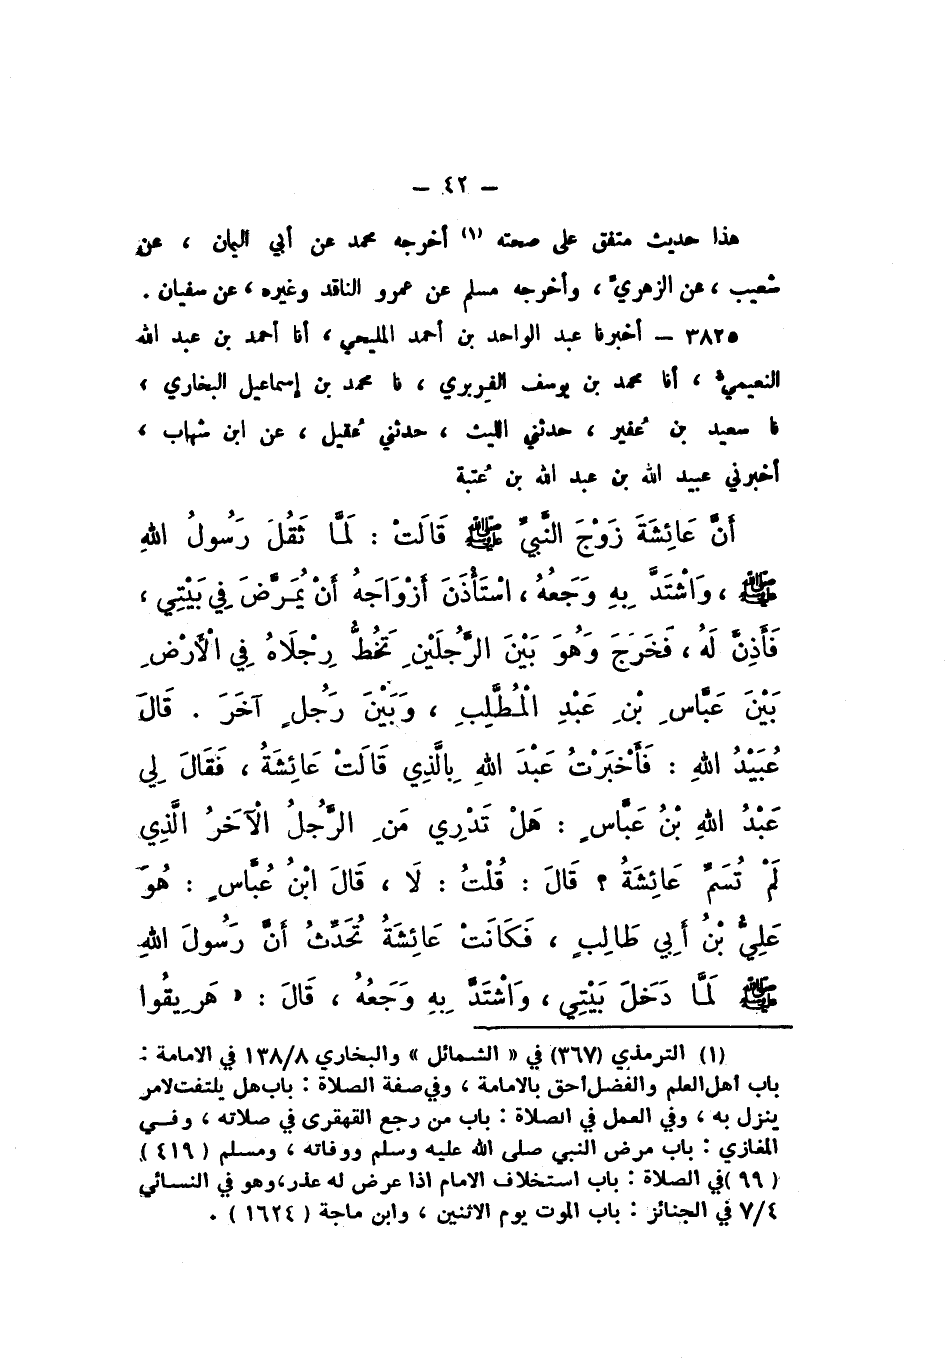 — ٤٢ —
هذا حديث متفق على صحته (١) أخرجه محمد عن أبي اليمان ، عن
شعيب ، عن الزهري ، وأخرجه مسلم عن عمرو الناقد وغيره ، عن سفيان .
٣٨٢٥ — أخبرنا عبد الواحد بن أحمد المليحي ، أنا أحمد بن عبد الله
النعيمي ، أنا محمد بن يوسف الفربري ، نا محمد بن إسماعيل البخاري ،
نا سعيد بن عُفير ، حدثني الليث ، حدثني عُقيل ، عن ابن شهاب ،
أخبرني عبيد الله بن عبد الله بن عُتبة
أَنَّ عَائِشَةَ زَوْجَ النَّبِيِّ ﷺ قَالَتْ : لَمَّا ثَقُلَ رَسُولُ اللهِ
ﷺ ، وَاشْتَدَّ بِهِ وَجَعُهُ ، اسْتَأْذَنَ أَزْوَاجَهُ أَنْ يُمَرَّضَ فِي بَيْتِي ،
فَأَذِنَّ لَهُ ، فَخَرَجَ وَهُوَ بَيْنَ الرَّجُلَيْنِ تَخُطُّ رِجْلَاهُ فِي الْأَرْضِ
بَيْنَ عَبَّاسِ بْنِ عَبْدِ الْمُطَّلِبِ ، وَبَيْنَ رَجُلٍ آخَرَ . قَالَ
عُبَيْدُ اللهِ : فَأَخْبَرْتُ عَبْدَ اللهِ بِالَّذِي قَالَتْ عَائِشَةُ ، فَقَالَ لِي
عَبْدُ اللهِ بْنُ عَبَّاسٍ : هَلْ تَدْرِي مَنِ الرَّجُلُ الْآخَرُ الَّذِي
لَمْ تُسَمِّ عَائِشَةُ ؟ قَالَ : قُلْتُ : لَا ، قَالَ ابْنُ عُبَّاسٍ : هُوَ
عَلِيُّ بْنُ أَبِي طَالِبٍ ، فَكَانَتْ عَائِشَةُ تُحَدِّثُ أَنَّ رَسُولَ اللهِ
ﷺ لَمَّا دَخَلَ بَيْتِي ، وَاشْتَدَّ بِهِ وَجَعُهُ ، قَالَ : « هَرِيقُوا
(١) الترمذي (٣٦٧) في « الشمائل » والبخاري ١٣٨/٨ في الامامة :
باب أهل العلم والفضل أحق بالامامة ، وفي صفة الصلاة : باب هل يلتفت لامر
ينزل به ، وفي العمل في الصلاة : باب من رجع القهقرى في صلاته ، وفي
المغازي : باب مرض النبي صلى الله عليه وسلم ووفاته ، ومسلم ( ٤١٩ )
( ٩٩ ) في الصلاة : باب استخلاف الامام اذا عرض له عذر، وهو في النسائي
٧/٤ في الجنائز : باب الموت يوم الاثنين ، وابن ماجة ( ١٦٢٤ ) .